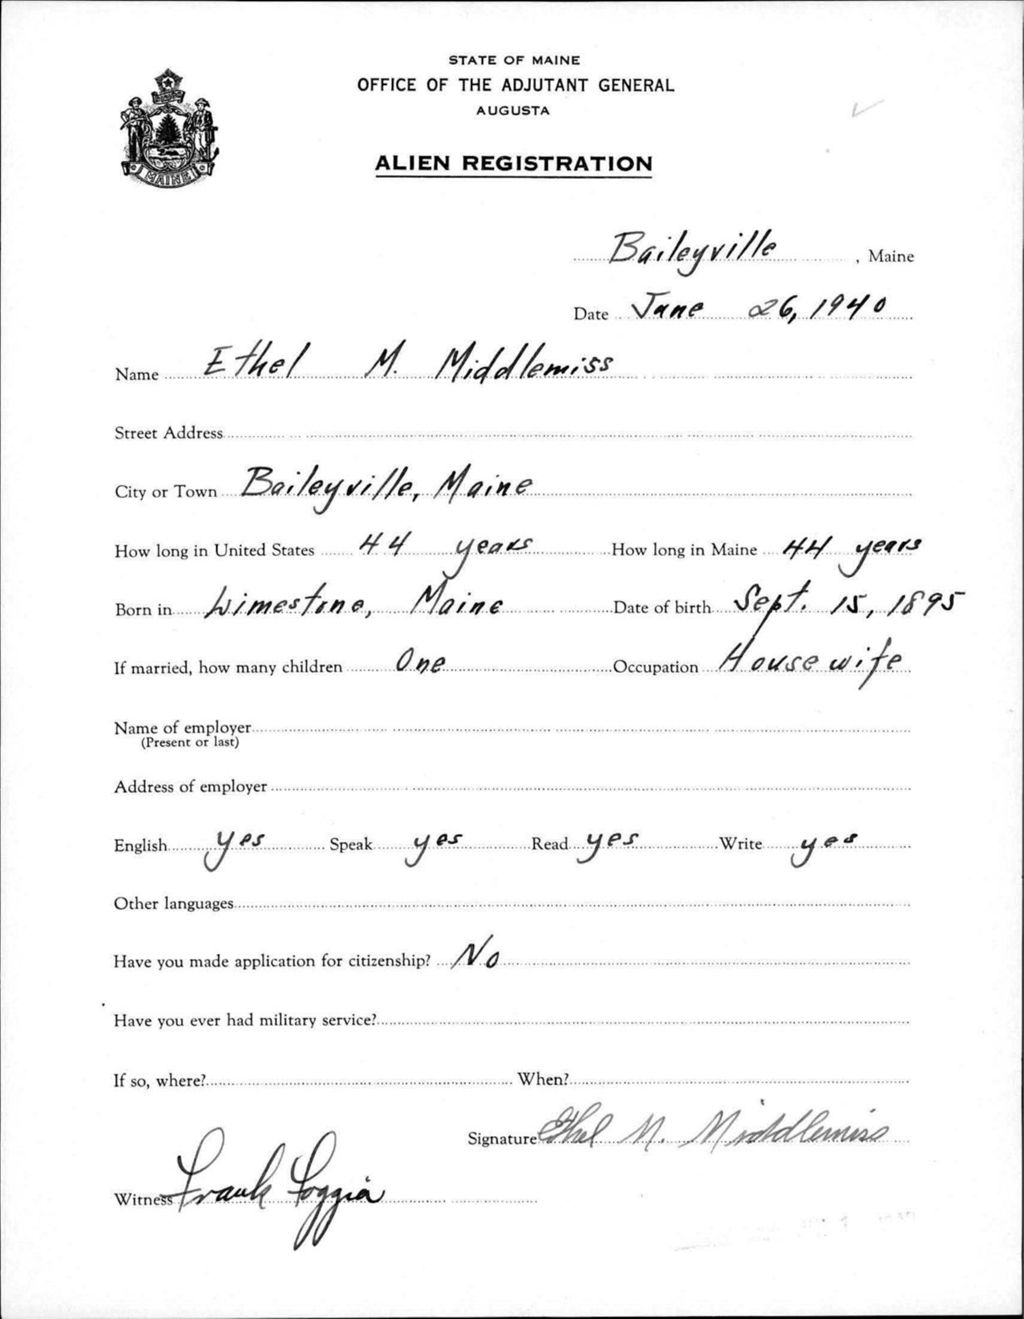 STATE OF MAINE
OFFICE OF THE ADJUTANT GENERAL
AUGUSTA
ALIEN REGISTRATION
MAINE
Baileyville, Maine
Date June 26, 1940
Name Ethel M. Middlemiss
Street Address
City or Town Baileyville, Maine
How long in United States 44 years How long in Maine 44 years
Born in Limestone, Maine Date of birth Sept. 15, 1895
If married, how many children One Occupation Housewife
Name of employer
(Present or last)
Address of employer
English yes Speak yes Read yes Write yes
Other languages
Have you made application for citizenship? No
Have you ever had military service?
If so, where? When?
Signature Ethel M. Middlemiss
Witness Frank Foggia